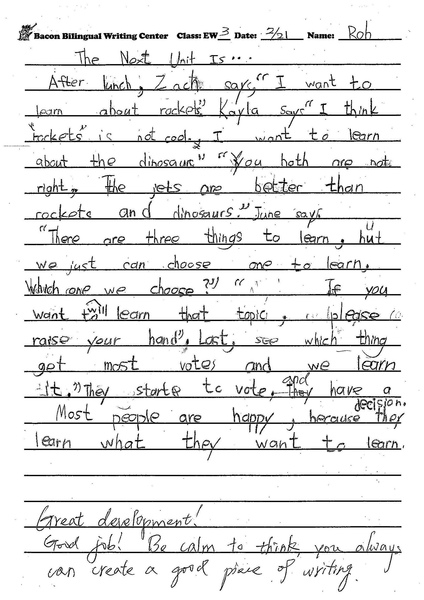 Bacon Bilingual Writing Center Class: EW 3 Date: 3/21 Name: Rob
The Next Unit Is...
After lunch, Zach say, "I want to
learn about rockets" Kayla says "I think
rockets" is not cool. I want to learn
about the dinosaurs" "You both are not
right, The jets are better than
rockets and dinosaurs." June say,
"There are three things to learn, but
we just can choose one to learn.
Which one we choose?" " If you
want will learn that topic, please
raise your hand", Last, see which thing
get most votes and we learn
it." They starts to vote, and they have a
decision.
Most people are happy, because they
learn what they want to learn.
Great development!
Good job! Be calm to think, you always
can create a good piece of writing.